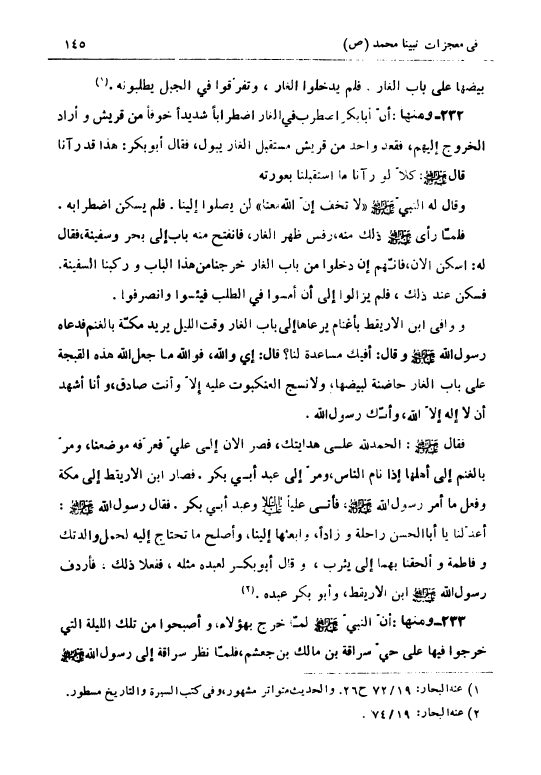 فى معجزات نبينا محمد (ص) ١٤٥
بيضها على باب الغار . فلم يدخلوا الغار ، وتفرّقوا في الجبل يطلبونه .(١)
٢٣٢ـ ومنها : أنّ أبابكر اضطرب في الغار اضطراباً شديداً خوفاً من قريش و أراد
الخروج إليهم، فقعد واحد من قريش مستقبل الغار يبول، فقال أبوبكر: هذا قد رآنا
قال ﷺ : كلاّ لو رآنا ما استقبلنا بعورته
وقال له النبيّ ﷺ «لا تخف إنّ الله معنا» لن يصلوا إلينا . فلم يسكن اضطرابه .
فلمّا رأى ﷺ ذلك منه، رفس ظهر الغار، فانفتح منه باب إلى بحر وسفينة، فقال
له: اسكن الان، فانّهم إن دخلوا من باب الغار خرجنا من هذا الباب و ركبنا السفينة.
فسكن عند ذلك ، فلم يزالوا إلى أن أمسوا في الطلب فيئسوا وانصرفوا .
و وافى ابن الاريقط بأغنام يرعاها إلى باب الغار وقت الليل يريد مكّة بالغنم فدعاه
رسول الله ﷺ و قال: أفيك مساعدة لنا؟ قال: إي والله، فوالله ما جعل الله هذه القبجة
على باب الغار حاضنة لبيضها، ولانسج العنكبوت عليه إلاّ وأنت صادق، و أنا أشهد
أن لا إله إلاّ الله، وأنّك رسول الله .
فقال ﷺ : الحمدلله على هدايتك، فصر الان إلى عليّ فعرّفه موضعنا، ومرّ
بالغنم إلى أهلها إذا نام الناس، ومرّ إلى عبد أبي بكر . فصار ابن الاريقط إلى مكة
وفعل ما أمر رسول الله ﷺ ، فأتى علياً عليه السلام وعبد أبي بكر . فقال رسول الله ﷺ :
أعدّ لنا يا أباالحسن راحلة و زاداً، وابعثها إلينا، وأصلح ما تحتاج إليه لحمل والدتك
و فاطمة و ألحقنا بهما إلى يثرب ، و قال أبوبكر لعبده مثله ، ففعلا ذلك ، فأردف
رسول الله ﷺ ابن الاريقط، وأبو بكر عبده .(٢)
٢٣٣ـ ومنها : أنّ النبيّ ﷺ لمّا خرج بهؤلاء، و أصبحوا من تلك الليلة التي
خرجوا فيها على حيّ سراقة بن مالك بن جعشم، فلمّا نظر سراقة إلى رسول الله ﷺ
١) عنه البحار: ١٩/ ٧٢ ح٢٦. والحديث متواتر مشهور، وفى كتب السيرة والتاريخ مسطور.
٢) عنه البحار: ١٩/ ٧٤ .